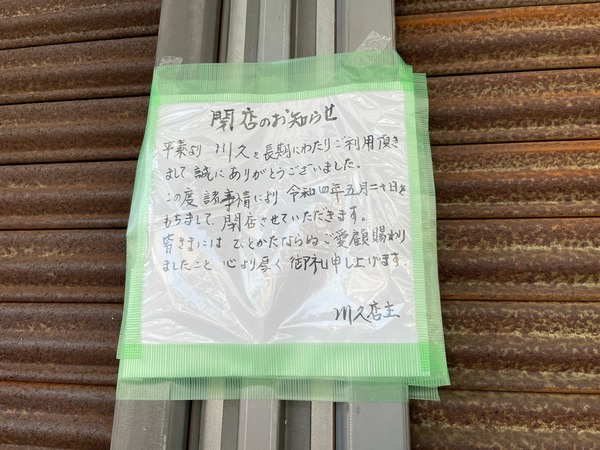 閉店のお知らせ
平素より 川久を長期にわたりご利用頂き
まして 誠にありがとうございました。
この度 諸事情により 令和四年五月二十日を
もちまして 閉店させていただきます。
皆さまには ひとかたならぬご愛顧賜わり
ましたこと 心より厚く 御礼申し上げます。
川久店主